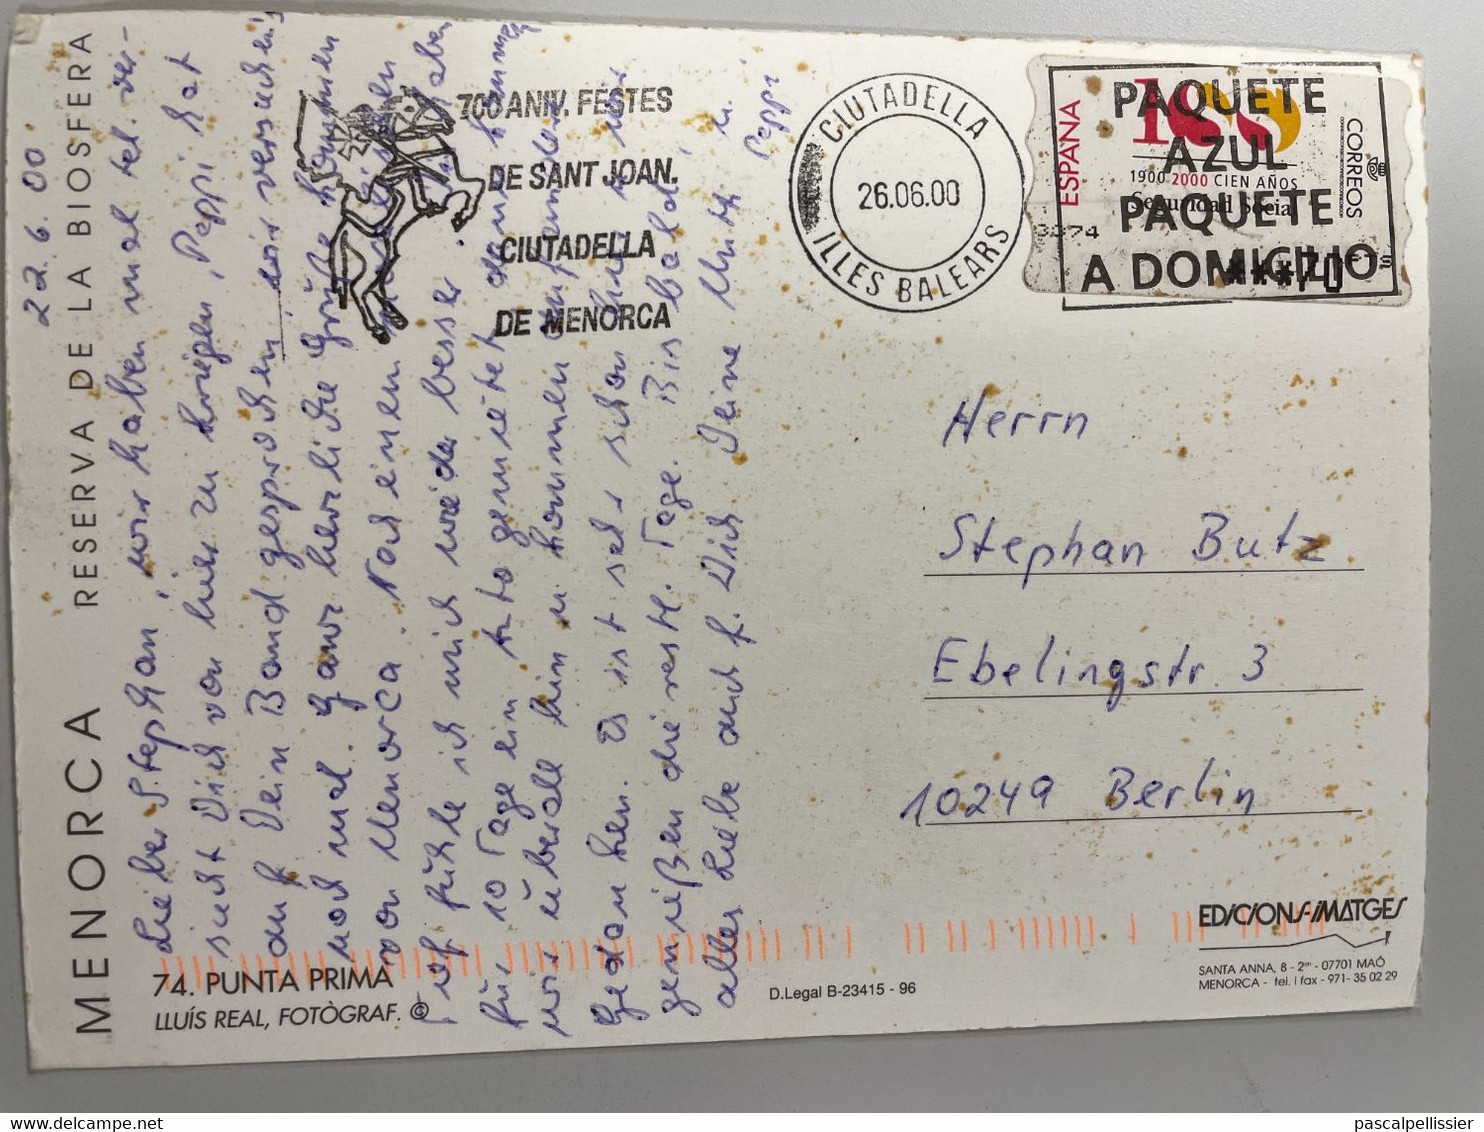 MENORCA RESERVA DE LA BIOSFERA
22.6.00
Lieber Stephan, wir haben mal tel. ver-
sucht Dich von hier zu kriegen, Peppi hat
auf Dein Band gesprochen, wir versuchen's
noch mal. Ganz herzliche Grüße kommen
von Menorca. Nach einem
Tief fühle ich mich wieder besser. haben
für 10 Tage ein Auto gemietet, damit kommen
wir überall hin u. kommen auf andere
Gedanken. Es ist sehr schön hier u. wir
genießen die restl. Tage. Bis bald,
alles Liebe auch f. Dich Deine Mutti u.
Peppi
700 ANIV. FESTES
DE SANT JOAN.
CIUTADELLA
DE MENORCA
CIUTADELLA
26.06.00
ILLES BALEARS
ESPAÑA
CORREOS
1900 2000 CIEN AÑOS
Seguridad Social
PAQUETE
AZUL
PAQUETE
A DOMICILIO
Herrn
Stephan Butz
Ebelingstr. 3
10249 Berlin
74. PUNTA PRIMA
LLUÍS REAL, FOTÒGRAF. ©
D.Legal B-23415 - 96
EDICIONS-IMATGES
SANTA ANNA, 8 - 2on - 07701 MAÓ
MENORCA - tel. i fax - 971- 35 02 29
pascalpellissier